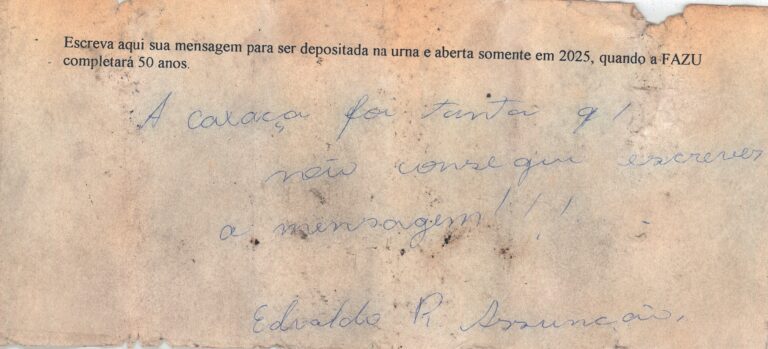 Escreva aqui sua mensagem para ser depositada na urna e aberta somente em 2025, quando a FAZU
completará 50 anos.
A caxaça foi tanta q!
não consegui escrever
a mensagem!!!
Edvaldo R. Assunção.